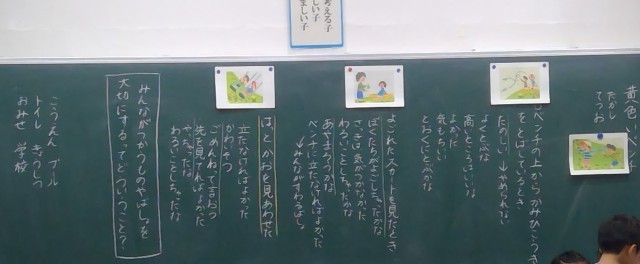 考える子
しい子
ましい子
黄色いベ
たかし
てつお
ベンチの上からかみひこうき
をとばしているとき
たのしい→やめられない
よくとぶな
高いところはいいな
よかった
気もちいい
とおくにとぶかな
よごれたスカートを見たとき
ぼくたちがよごしちゃったかな
さっきは気がつかなかった
わるいことしちゃったかな
あやまろうかな
ベンチに立たなければよかった
→みんながすわるばしょ
はっとかおを見あわせた
立たなければよかった
かわいそう
ごめんねって言おう
先を見ればよかった
やっちゃったな
わるいことしちゃったな
みんながつかうものやばしょを
大切にするってどういうこと?
こうえん プール
トイレ きょうしつ
おみせ 学校